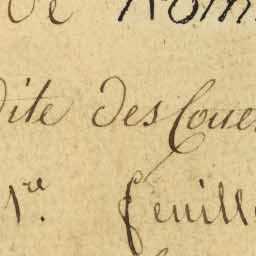 de Rom
dite des Coue
1re. feuille